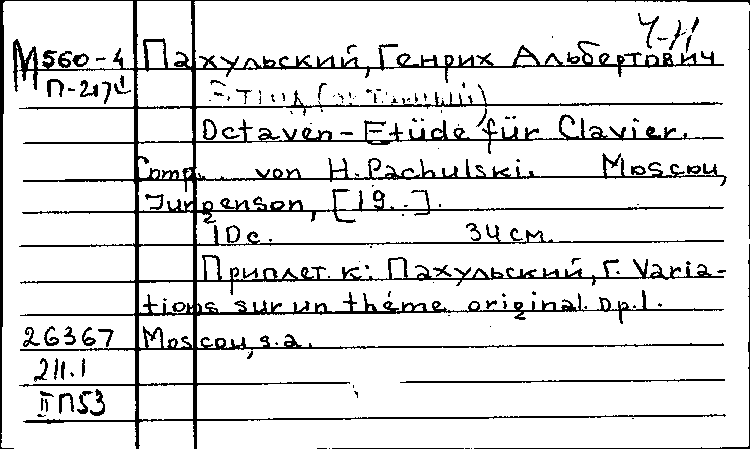 Ч-Н
М 560-4 Пахульский, Генрих Альбертович
П-217
Этюд (октавный)
Octaven-Etüde für Clavier.
Comp. von H. Pachulski. Moscou,
Jurgenson, [19..].
10 с. 34 см.
Приплет. к: Пахульский, Г. Varia-
tions sur un thème original. Op. 1.
26367 Moscou, s.a.
211.1
II П53